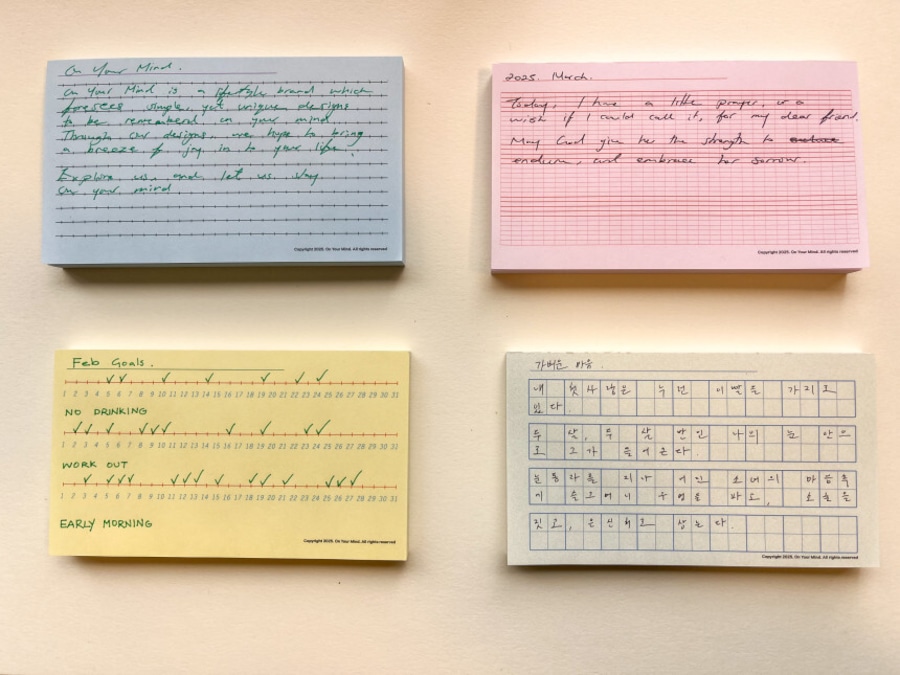 On Your Mind.
On Your Mind is a lifestyle brand which
foresees simple, yet unique designs
to be remembered in your mind.
Through our designs, we hope to bring
a breeze of joy in to your life.
Explore us, and let us stay
On your mind
Copyright 2025. On Your Mind. All rights reserved
2025. March.
Today, I have a little prayer, or a
wish if I could call it, for my dear friend.
May God give her the strength to
endure, and embrace her sorrow.
Copyright 2025. On Your Mind. All rights reserved
Feb Goals.
1 2 3 4 5 6 7 8 9 10 11 12 13 14 15 16 17 18 19 20 21 22 23 24 25 26 27 28 29 30 31
NO DRINKING
1 2 3 4 5 6 7 8 9 10 11 12 13 14 15 16 17 18 19 20 21 22 23 24 25 26 27 28 29 30 31
WORK OUT
1 2 3 4 5 6 7 8 9 10 11 12 13 14 15 16 17 18 19 20 21 22 23 24 25 26 27 28 29 30 31
EARLY MORNING
Copyright 2025. On Your Mind. All rights reserved
가벼운 마음.
내 첫사랑은 누런 이빨을 가지고
있다.
두 살, 두 살 반인 나의 눈 안으
로 그가 들어온다.
눈동자를 지나 여린 소녀의 마음속
에 슬그머니 구멍을 파고, 호흡을
짓고, 은신처로 삼는다.
Copyright 2025. On Your Mind. All rights reserved